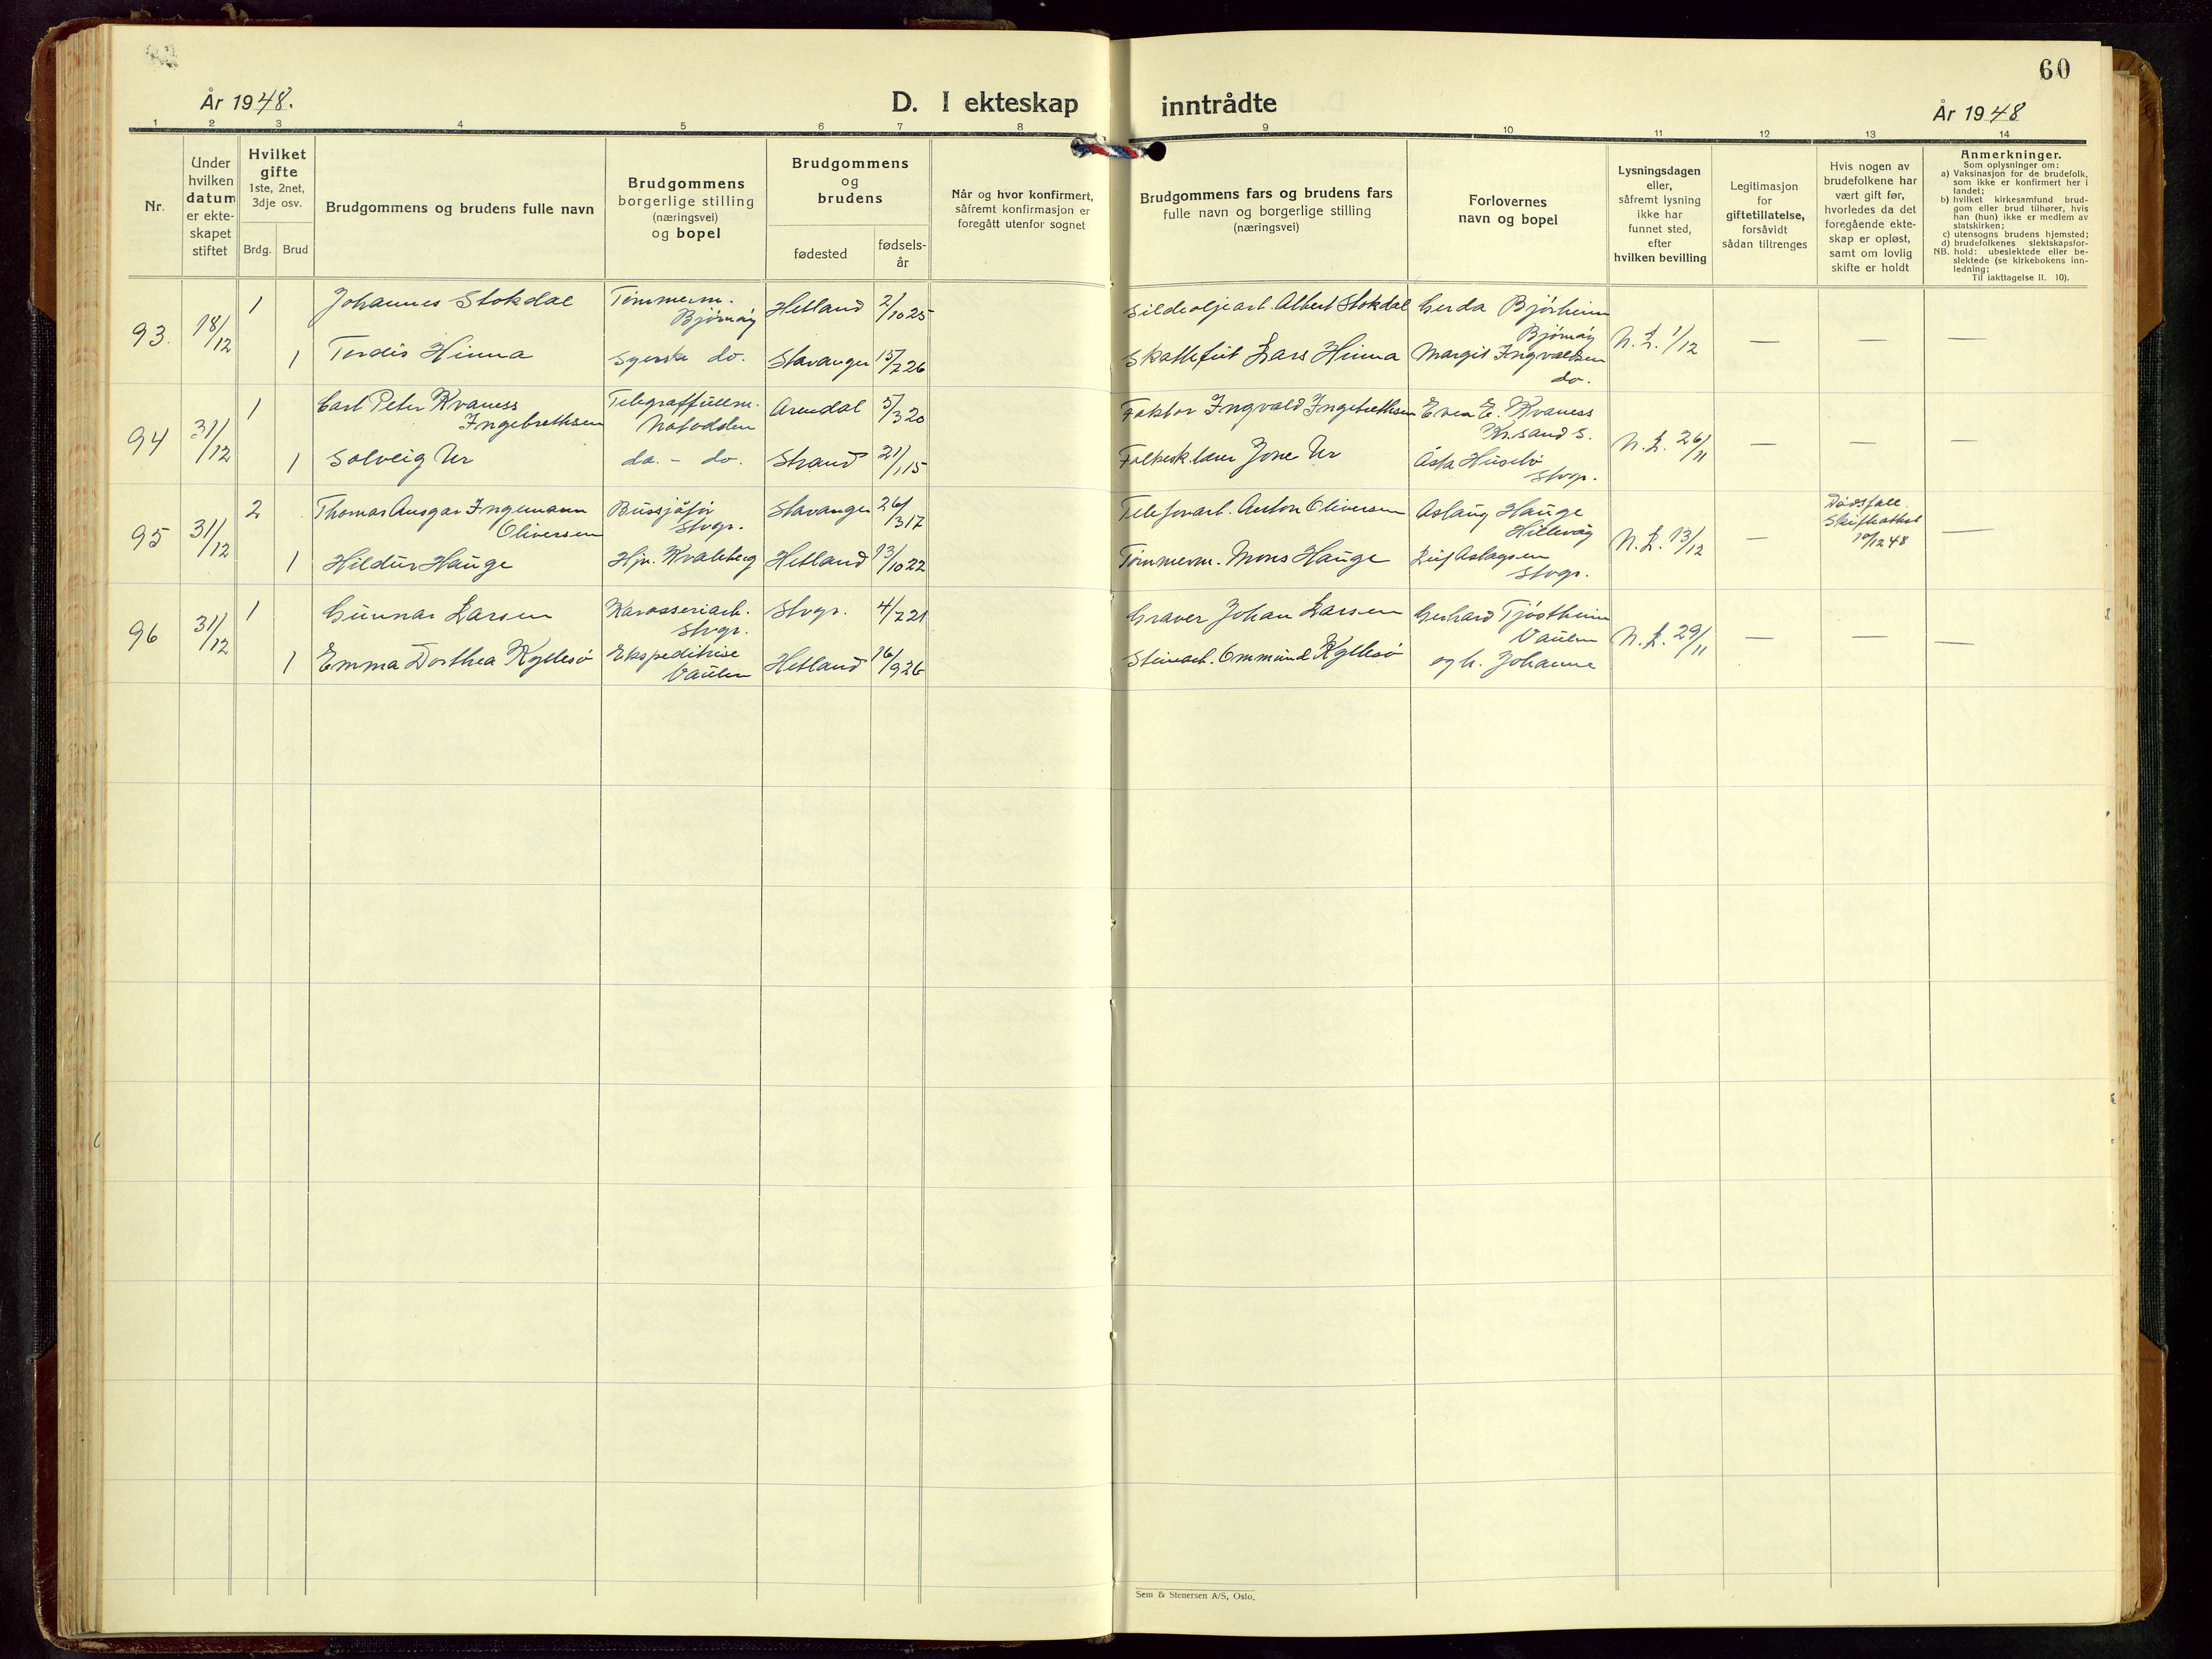 60
År 1948.
D. I ekteskap inntrådte
År 1948
1 2 3 4 5 6 7 8 9 10 11 12 13 14
Nr.
Under
hvilken
datum
er ekte-
skapet
stiftet
Hvilket
gifte
1ste, 2net,
3dje osv.
Brdg. Brud
Brudgommens og brudens fulle navn
Brudgommens
borgerlige stilling
(næringsvei)
og bopel
Brudgommens
og
brudens
fødested
fødsels-
år
Når og hvor konfirmert,
såfremt konfirmasjon er
foregått utenfor sognet
Brudgommens fars og brudens fars
fulle navn og borgerlige stilling
(næringsvei)
Forlovernes
navn og bopel
Lysningsdagen
eller,
såfremt lysning
ikke har
funnet sted,
efter
hvilken bevilling
Legitimasjon
for
giftetillatelse,
forsåvidt
sådan tiltrenges
Hvis nogen av
brudefolkene har
vært gift før,
hvorledes da det
foregående ekte-
skap er opløst,
samt om lovlig
skifte er holdt
Anmerkninger.
Som oplysninger om:
a) Vaksinasjon for de brudefolk,
som ikke er konfirmert her i
landet;
b) hvilket kirkesamfund brud-
gom eller brud tilhører, hvis
han (hun) ikke er medlem av
statskirken;
c) utensogns brudens hjemsted;
d) brudefolkenes slektskapsfor-
NB. hold: ubeslektede eller be-
slektede (se kirkebokens inn-
ledning;
Til iakttagelse II. 10).
93. 18/12 1 Johannes Stokdal Tømmerm. Hetland 2/10 25 Sildeoljearb. Albert Stokdal Gerda Bjørheim
Bjørnøy Bjørnøy N.L. 1/12 — — —
1 Tordis Hinna Syerske do. Stavanger 15/7 26 Skattefut Lars Hinna Margit Ingvaldsen
do.
94 31/12 1 Carl Peter Kvaness Telegraffullm. Arendal 5/3 20 Faktor Ingvald Ingebrethsen Even E. Kvaness
Ingebrethsen Notodden Kr.sand S. N.L. 26/11 — — —
1 Solveig Ur do. - do. Strand 21/1 15 Folkesk.lærer Jone Ur Åsta Husebø
Stvgr.
95 31/12 2 Thomas Ansgar Ingemann Bussjåfør Stavanger 26/3 17 Telefonarb. Anton Oliversen Aslaug Hauge Dødsfall.
Oliversen Stvgr. Hillevåg N.L. 13/12 — Skifteattest —
10/12 48
1 Hildur Hauge Hjv. Kvaleberg Hetland 13/10 22 Tømmerm. Mons Hauge Leif Aslagsen
Stvgr.
96 31/12 1 Gunnar Larsen Karosseriarb. Stvgr. 4/7 21 Graver Johan Larsen Gerhard Tjøstheim
Stvgr. Vaulen N.L. 29/11 — — —
1 Emma Dorthea Kyllesø Ekspeditrise Hetland 16/9 26 Steinarb. Ommund Kyllesø og h. Johanne
Vaulen
Sem & Stenersen A/S, Oslo.